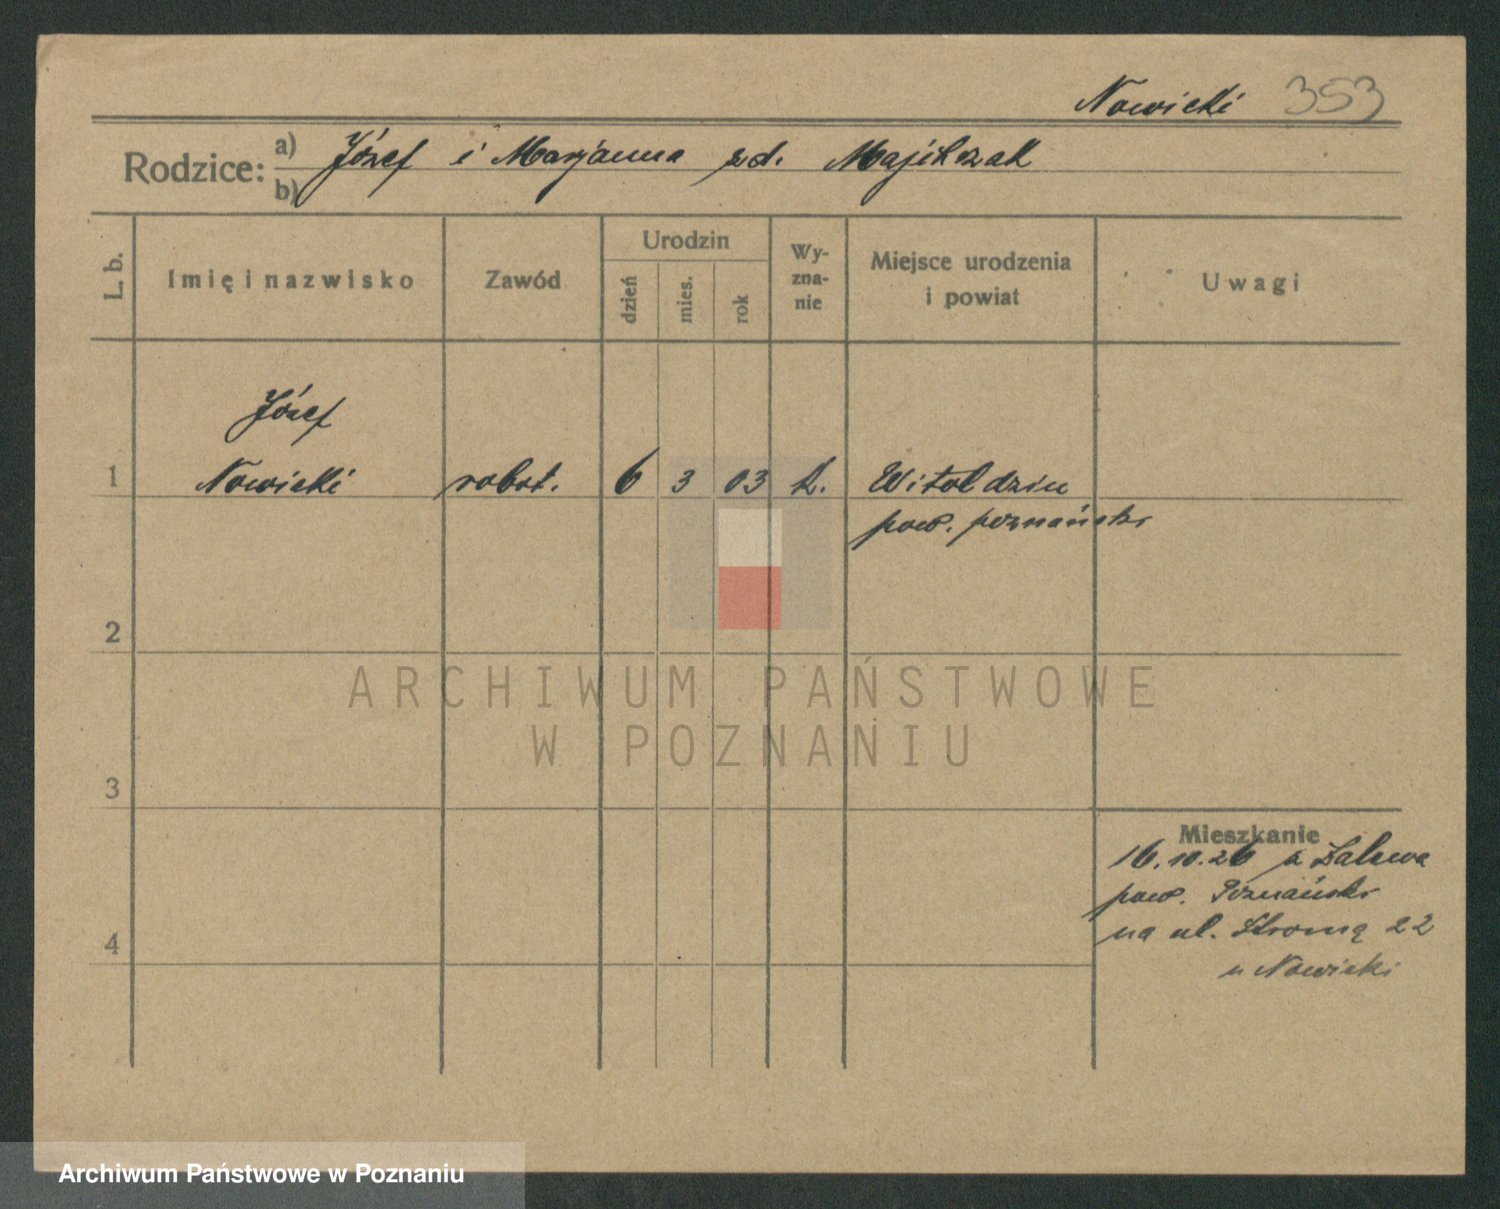 Nowicki 353
Rodzice: a) Józef i Marjanna zd. Majchrzak
b)
L. b.
Imię i nazwisko
Zawód
Urodzin
dzień
mies.
rok
Wy-
zna-
nie
Miejsce urodzenia
i powiat
Uwagi
Józef
1 Nowicki robot. 6 3 03 k. Witoldzin
pow. poznański
2
3
4
Mieszkanie
16.10.26 z
pow. Poznański
na ul. Stromą 22
u Nowicki
ARCHIWUM PAŃSTWOWE
W POZNANIU
Archiwum Państwowe w Poznaniu